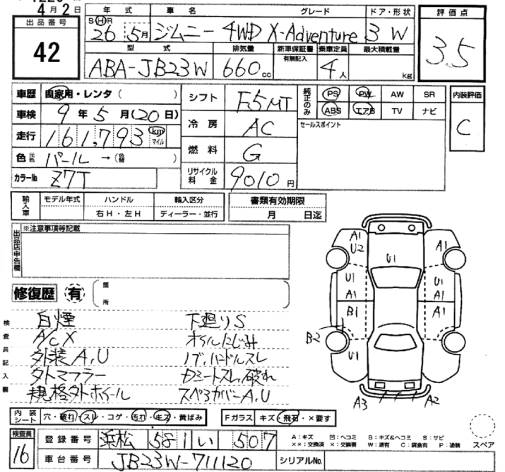 4月2日
出品番号
42
年式 車名 グレード ドア・形状 評価点
S H R
26年5月 ジムニー 4WD X-Adventure 3 W
3.5
型式 排気量 新車保証書 乗車定員 最大積載量
有無記入
ABA-JB23W 660cc 4人 kg
車歴 自家用・レンタ( )
車検 9年5月(20日)
走行 161,793 km マイル
色 パール→(色替)
カラーNo Z7T
シフト F5MT
冷房 AC
燃料 G
リサイクル料金 9010円
純正のみ PS PW AW SR
ABS エアB TV ナビ
セールスポイント
内装評価
C
輸入車 モデル年式 ハンドル 輸入区分 書類有効期限
右H・左H ディーラー・並行 月 日迄
出品店申告欄 ※注意事項等記載
修復歴 有 箇所
検査員記入欄
白煙 下廻りS
ACX オイルにじみ
外装A,U Fバンパースレ
外マフラー Rシートスレ,破れ
規格外ホイール スペアカバーA,U
A1 U2 U1 A1
U1 A1 U1 U1 A1
B1 A1
B2
A3 A2
内装シート 穴・破れ・スレ・コゲ・汚れ・キズ・黄ばみ Fガラス キズ・飛石・×要す
スペア
検査員
16
登録番号 浜松 581 い 507
車台番号 JB23W-711120 シリアルNo.
A:キズ U:ヘコミ B:キズ&ヘコミ S:サビ
××:交換済 X:交換要 W:波有 C:腐食有 P:塗装